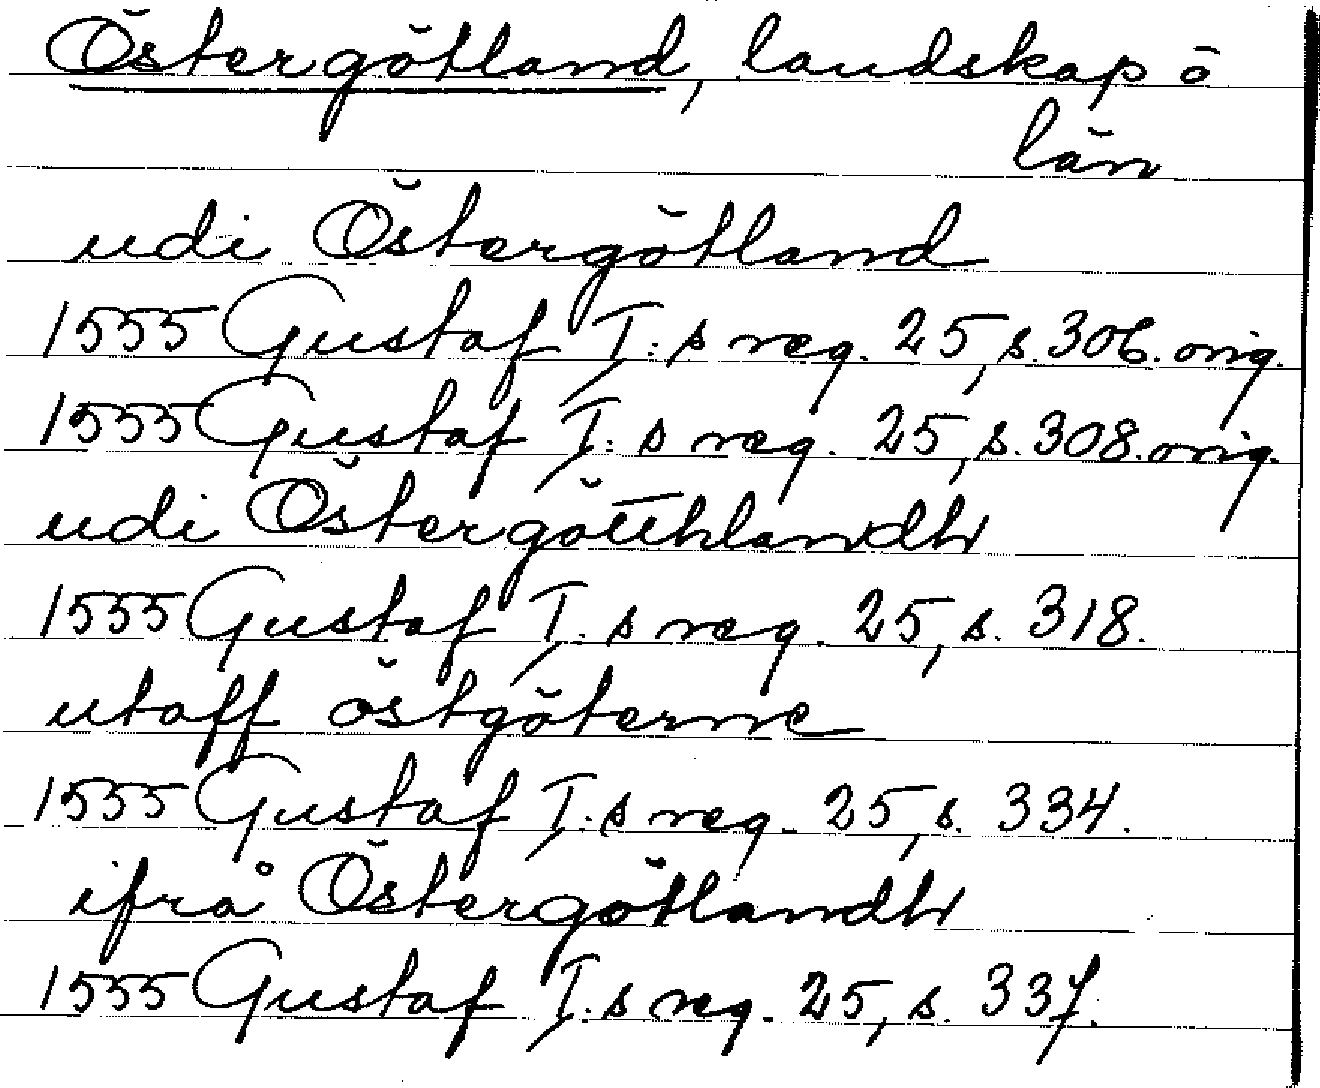 Östergötland, landskap o
län
udi Östergötland
1555 Gustaf I:s reg. 25, s. 306. orig.
1555 Gustaf I:s reg. 25, s. 308. orig.
udi Östergötthlandh
1555 Gustaf I:s reg. 25, s. 318.
utaff östgöterne
1555 Gustaf I:s reg. 25, s. 334.
ifrå Östergötlandh
1555 Gustaf I:s reg. 25, s. 337.